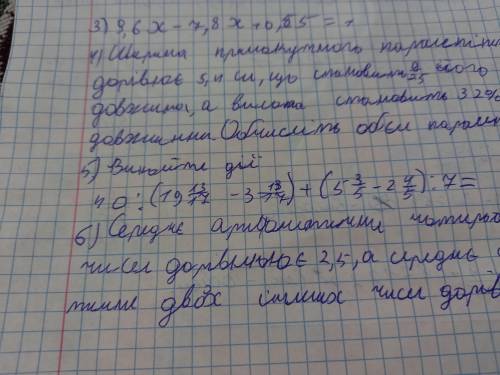 3) 9,6x - 7,8x + 0,55 =
4) Ширина прямокутного
дорівнює 5,4 см, що становить 9/25 його
довжини, а висота становить 32%
довжини. Обчисліть обєм
5) Виконайте дії
: (19 13/17 - 3 13/17) + (5 3/5 - 2 4/5) : 7 =
6) Середнє арифметичне
чисел дорівнює 2,5, а середнє
двох інших чисел